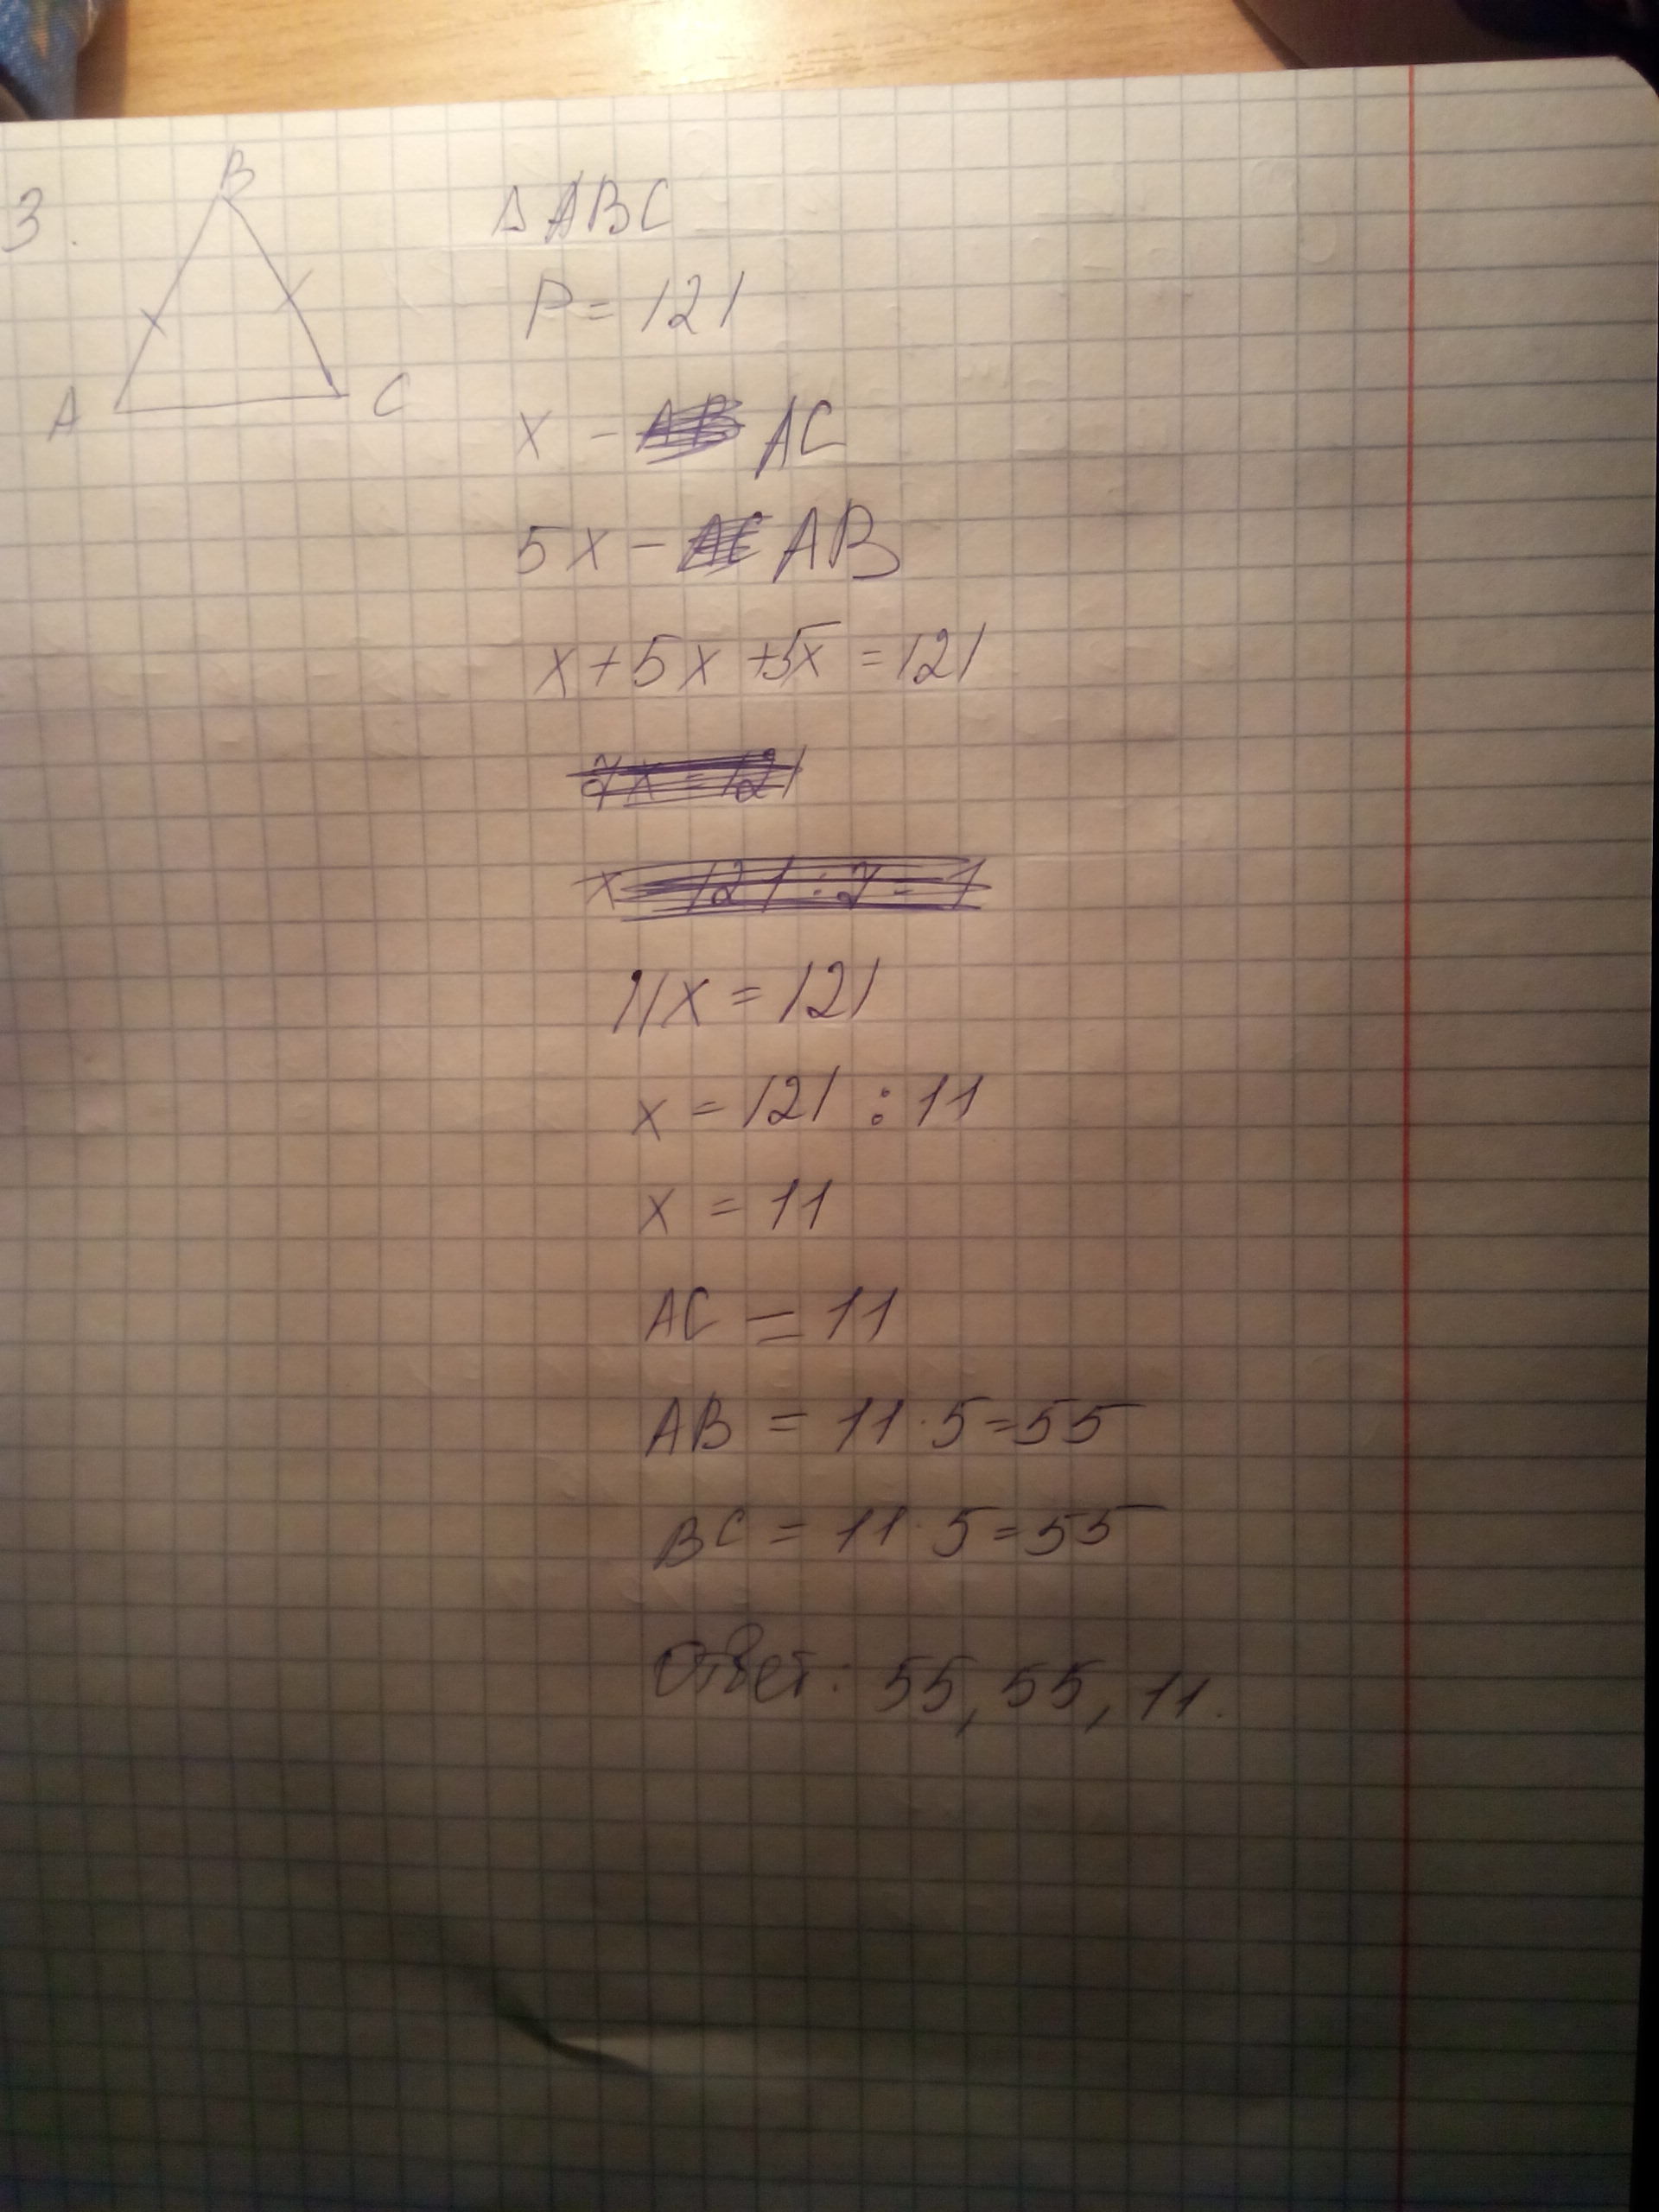 3.
B
A
C
△ABC
P = 121
x - AB AC
5x - AC AB
x + 5x + 5x = 121
7x = 121
x = 121 : 7 = 1
11x = 121
x = 121 : 11
x = 11
AC = 11
AB = 11 · 5 = 55
BC = 11 · 5 = 55
Ответ: 55, 55, 11.